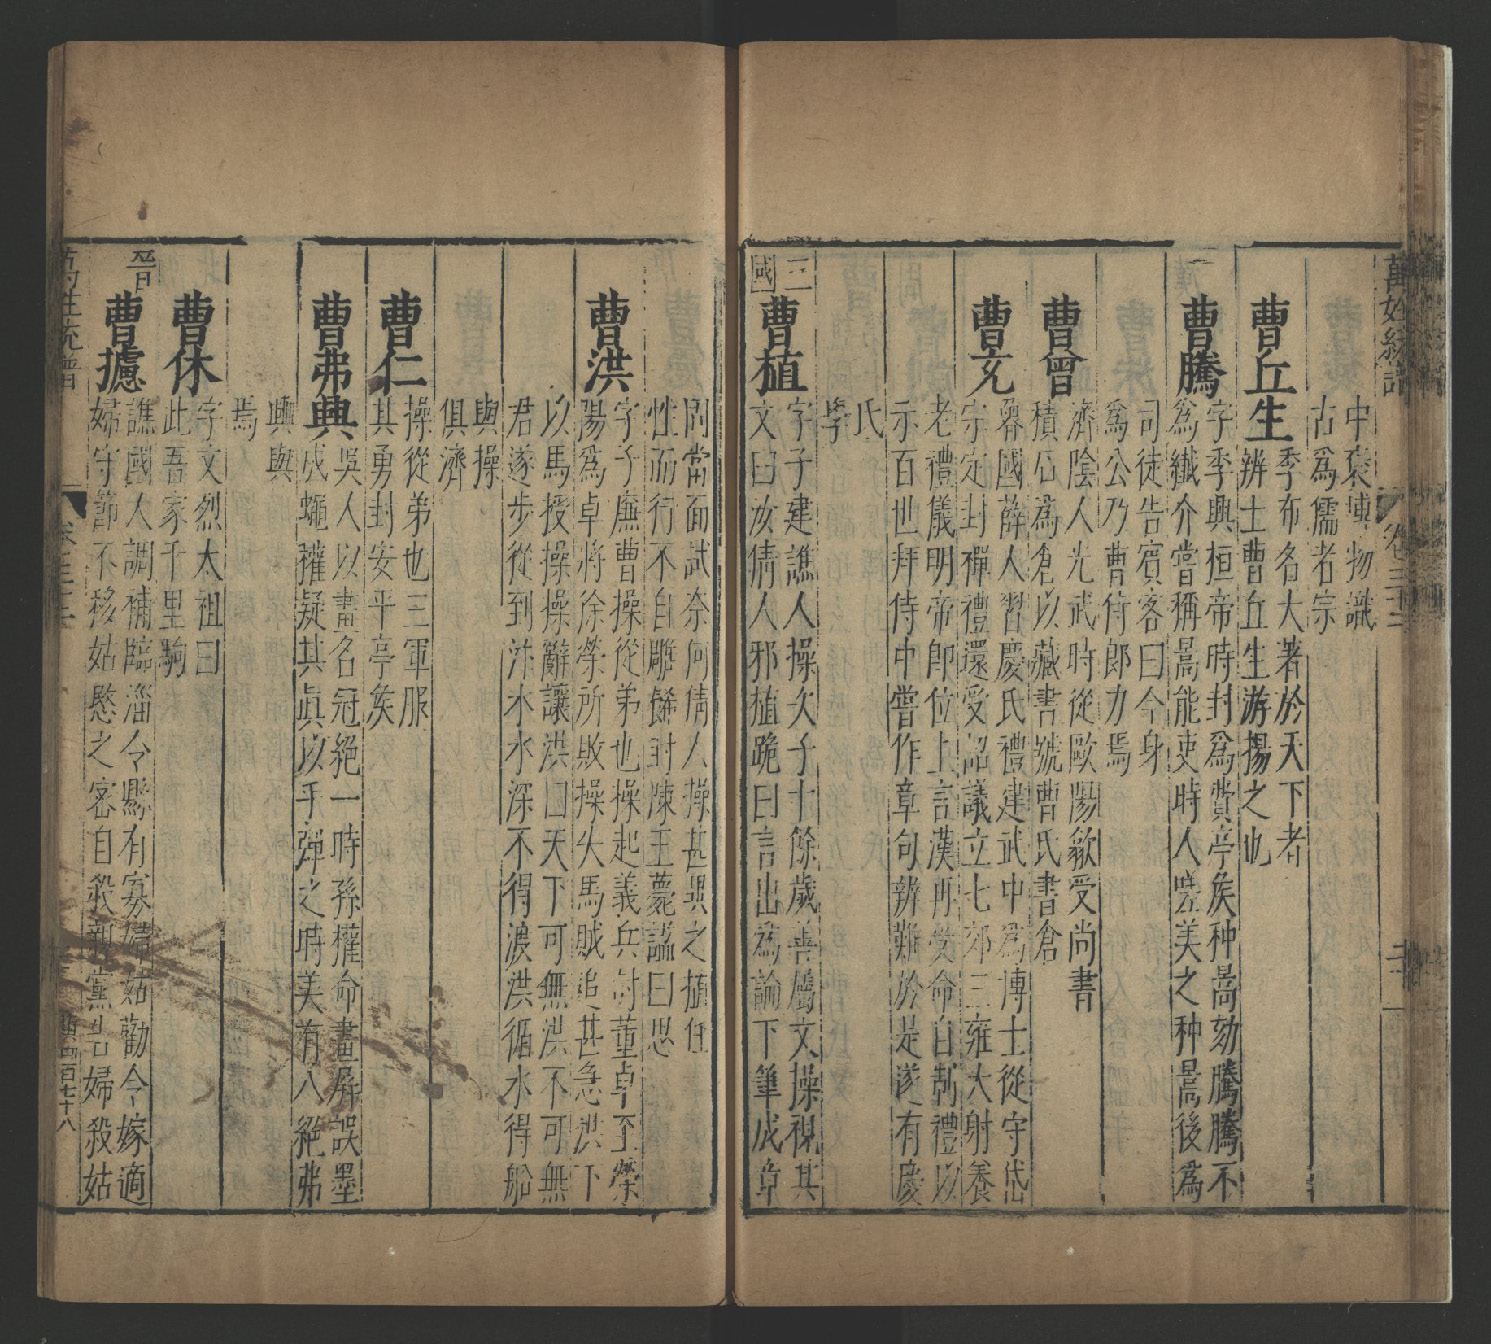 萬姓統譜
卷三十二
中褒博物識
古為儒者宗
曹丘生
季布名大著於天下者
辨士曹丘生游揚之也
曹騰
字季興桓帝時封為費亭侯种暠劾騰騰不
為纎介嘗稱暠能吏時人嗟美之种暠後為
司徒告賓客曰今身
為公乃曹侍郎力焉
曹曾
濟陰人光武時從歐陽歙受尚書
積石為倉以藏書號曹氏書倉
曹充
魯國薛人習慶氏禮建武中為博士從守岱
宗定封禪禮還受詔議立七郊三雍大射養
老禮儀明帝即位上言漢再受命自制禮以
示百世拜侍中嘗作章句辨難於是遂有慶
氏
學
三國
曹植
字子建譙人操次子十餘歲善屬文操視其
文曰汝倩人邪植跪曰言出為論下筆成章
固當面試奈何倩人操甚異之植任
性而行不自雕飾封陳王薨謚曰思
曹洪
字子廉曹操從弟也操起義兵討董卓至滎
陽為卓將徐榮所敗操失馬賊追甚急洪下
以馬授操操辭讓洪曰天下可無洪不可無
君遂步從到汴水水深不得渡洪循水得船
與操
俱濟
曹仁
操從弟也三軍服
其勇封安平亭侯
曹弗興
吳人以畫名冠絕一時孫權命畫屏誤墨
成蠅權疑其真以手彈之時吳有八絕弗
興與
焉
曹休
字文烈太祖曰
此吾家千里駒
晉
曹攄
譙國人調補臨淄令縣有寡婦姑勸令嫁適
婦守節不移姑愍之密自殺親黨告婦殺姑
萬姓統譜
卷三十二
四百七十八